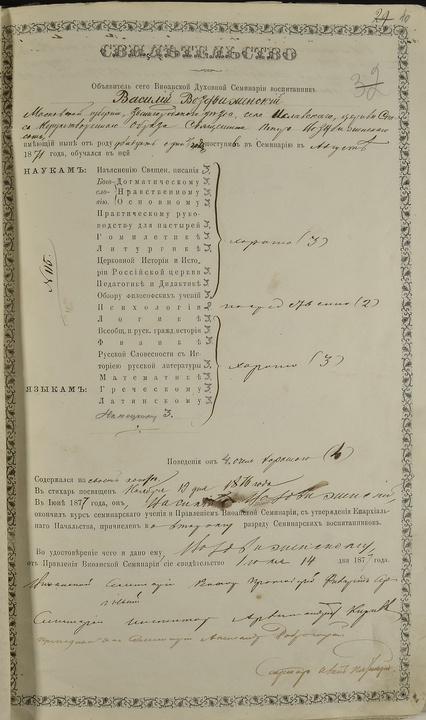 24 10
32
СВИДѢТЕЛЬСТВО
Объявитель сего Виѳанской Духовной Семинаріи воспитанникъ
Василій Воздвиженскій
Московской губерніи, уѣзда, села церкви
Нерукотвореннаго Образа Священника Петра Воздвиженскаго
имѣющій нынѣ отъ роду двадцать поступивъ въ Семинарію въ Августѣ
1871 года, обучался въ ней
НАУКАМЪ: Изъясненію Священ. писанія 3
Бого- Догматическому 3
сло- Нравственному 3
вію. Основному 3
Практическому руко-
водству для пастырей 3
Гомилетикѣ 3
Литургикѣ 3
Церковной Исторіи и Исто-
ріи Россійской церкви 3
Педагогикѣ и Дидактикѣ 3
Обзору философскихъ ученій 3
хорошо (3)
№ 115.
Психологіи посредственно (2)
Логикѣ 3
Всеобщ. и русск. гражд. исторіи 3
Физикѣ 3
Русской Словесности съ Ис-
торіею русской литературы 3
Математикѣ 3
ЯЗЫКАМЪ: Греческому 3
Латинскому 3
хорошо (3)
Нѣмецкому 3.
Поведенія онъ очень хорошаго
Содержался на
Въ стихарь посвященъ Ноября дня 1876 года
Въ Іюнѣ 1877 года, онъ, Василій Воздвиженскій,
окончилъ курсъ семинарскаго ученія и Правленіемъ Виѳанской Семинаріи, съ утвержденія Епархіаль-
наго Начальства, причисленъ ко второму разряду Семинарскихъ воспитанниковъ.
Во удостовѣреніе чего и дано ему Воздвиженскому
отъ Правленія Виѳанской Семинаріи сіе свидѣтельство Іюля 14 дня 1877 года.
Виѳанской Семинаріи Ректоръ Протоіерей
Семинаріи Инспекторъ